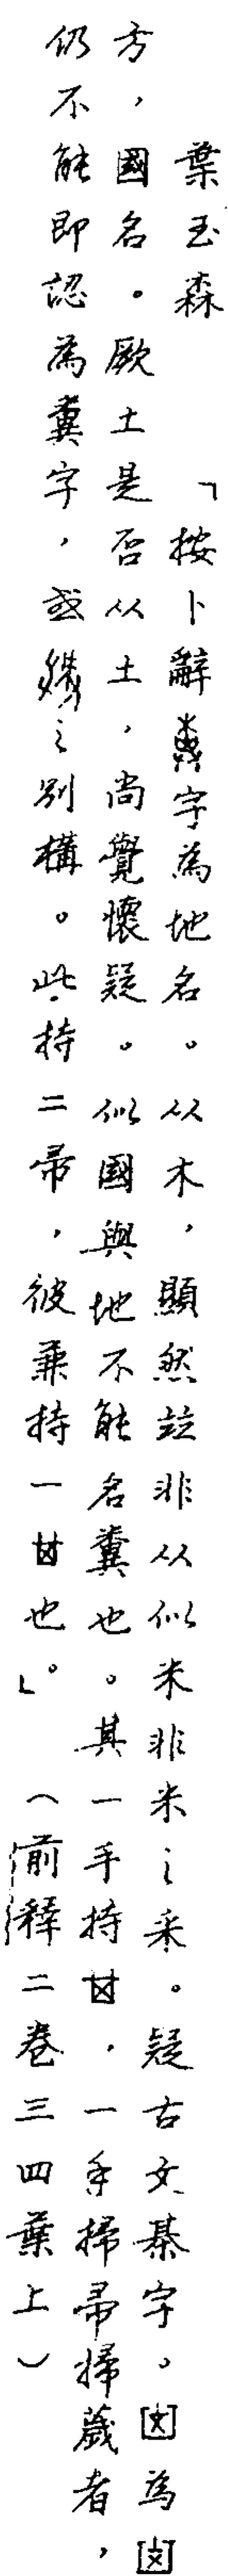 葉玉森　「按卜辭字為地名。从木，顯然竝非从似米非米之釆。疑古文棊字。為
方，國名。厥土是否从土，尚覺懷疑。似國與地不能名糞也。其一手持，一手掃帚掃蔵者，
仍不能即認為糞字，或之別構。此持二帚，彼兼持一也」。（前釋二卷三四葉上）